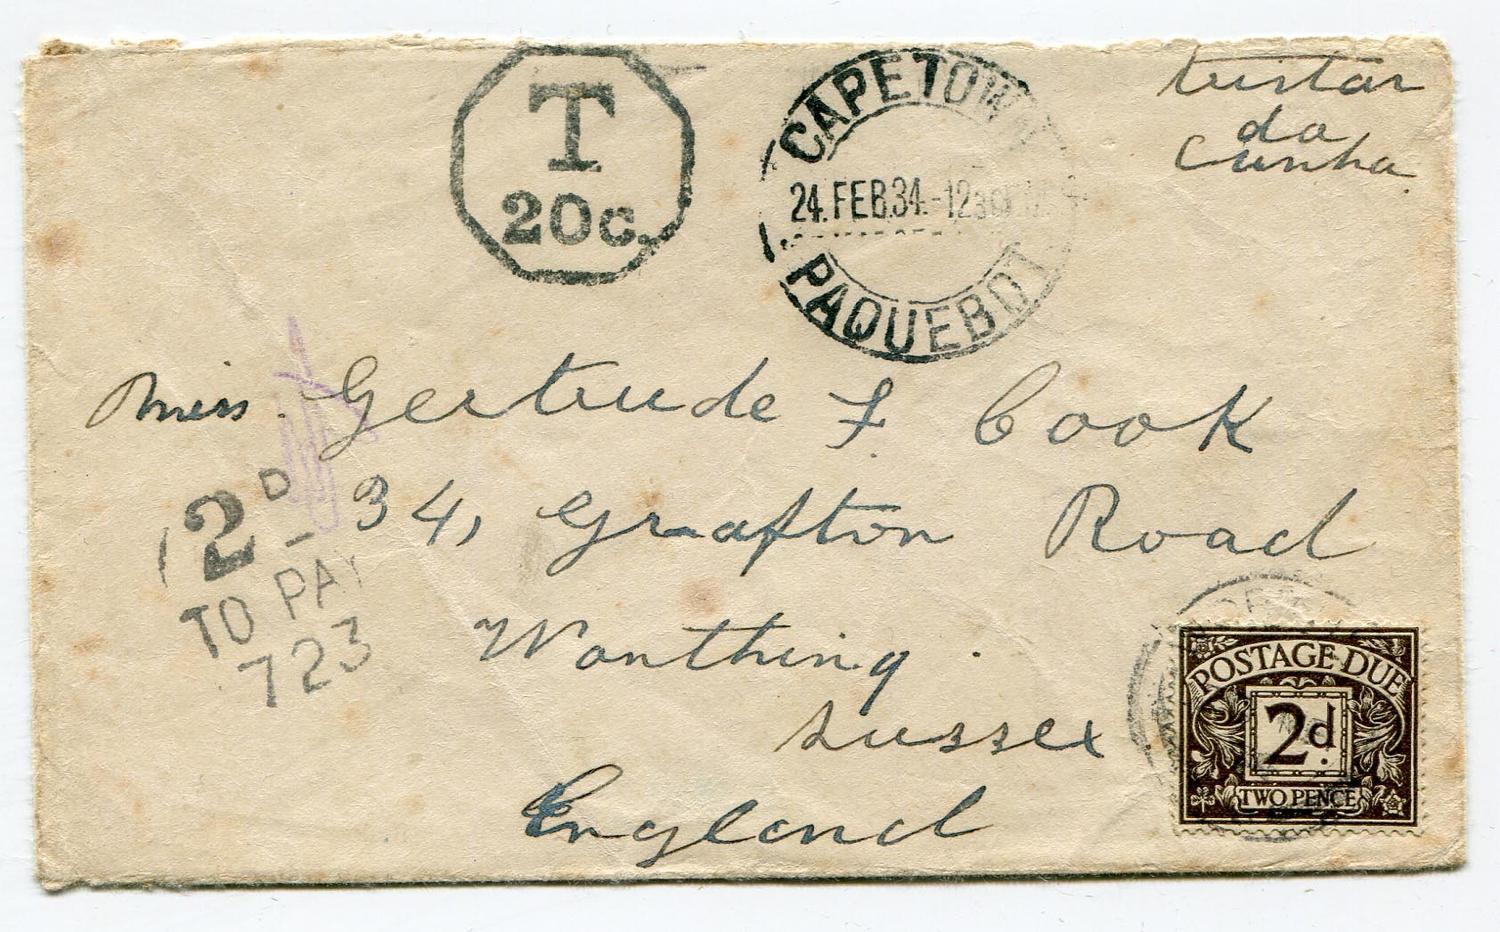 T
20c.
CAPETOWN
24.FEB.34.-12
PAQUEBOT
Tristan
da
Cunha
Miss. Gertrude F. Cook
34, Grafton Road
Worthing.
Sussex
England
2D
TO PAY
723
POSTAGE DUE
2d.
TWO PENCE